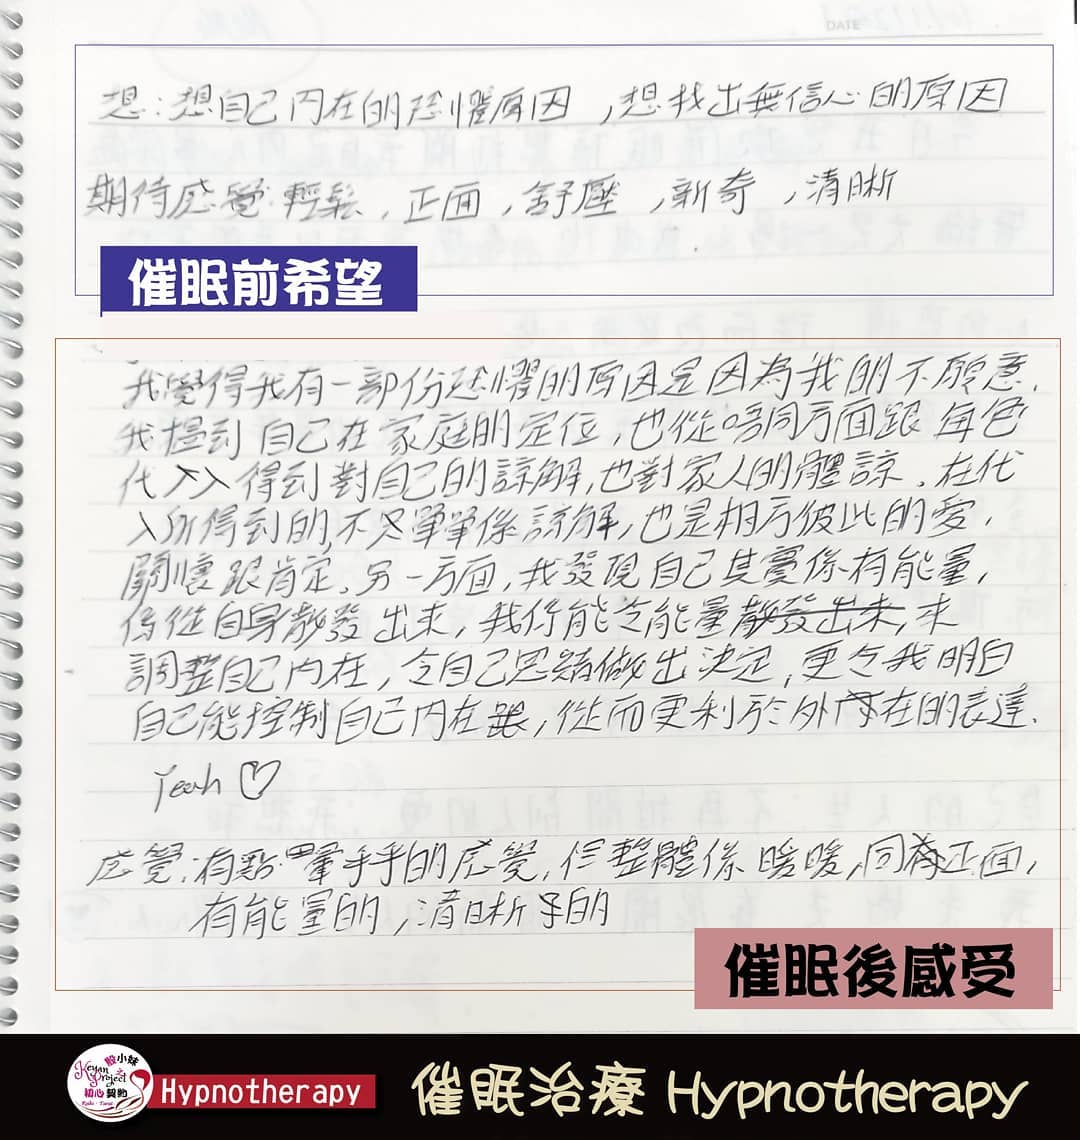 DATE
想：想自己內在的恐懼原因，想找出無信心的原因
期待感覺：輕鬆，正面，舒壓，新奇，清晰
催眠前希望
我覺得我有一部份恐懼的原因是因為我的不願意.
我搵到自己在家庭的定位，也從唔同方面跟角色
代入入得到對自己的諒解，也對家人的體諒. 在代
入所得到的，不只單單係諒解，也是相方彼此的愛，
關懷跟肯定. 另一方面，我發現自己其實係有能量，
係從自身散發出來，我係能令能量散發出來，來
調整自己內在，令自己思緒做出決定，更令我明白
自己能控制自己內在跟，從而更利於外在的表達.
Yeah ♡
感覺：有點暈乎乎的感覺，但整體係暖暖，同為正面，
有能量的，清晰的
催眠後感受
殷小妹
之
Keyan Project
初心契動
Reiki · Tarot
Hypnotherapy
催眠治療 Hypnotherapy